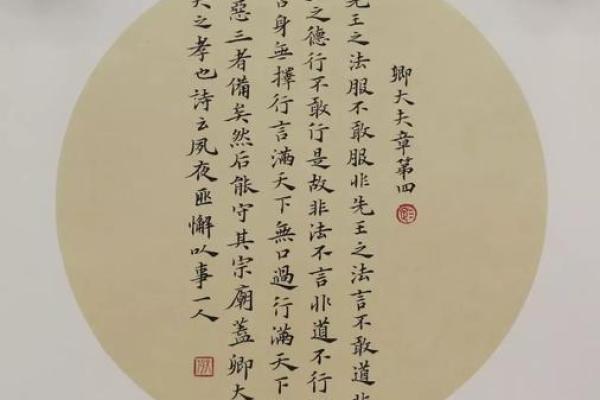 卿大夫章第四
先王之法服不敢服非先王之法言不敢道非
之德行不敢行是故非法不言非道不行
言身無擇行言滿天下無口過行滿天下
惡三者備矣然后能守其宗廟蓋卿大
夫之孝也詩云夙夜匪懈以事一人